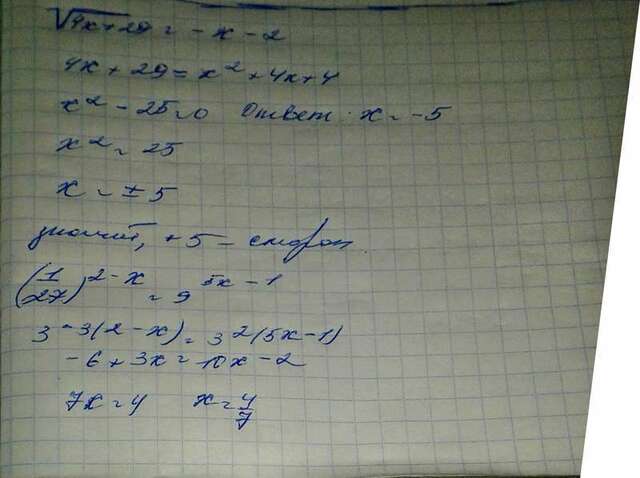 √4x+29 = -x-2
4x+29 = x²+4x+4
x²-25=0 Ответ: x=-5
x²=25
x=±5
значит, +5 -
(1/27)^2-x = 9^5x-1
3^-3(2-x) = 3^2(5x-1)
-6+3x=10x-2
7x=4 x=4/7